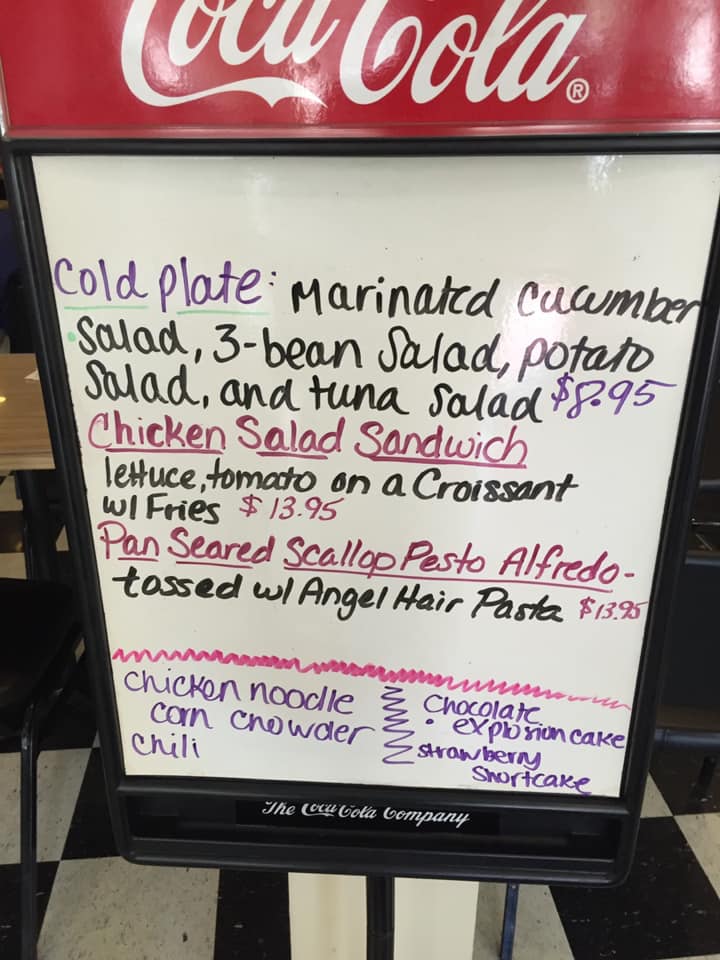 Coca Cola®
Cold Plate: Marinated cucumber
Salad, 3-bean Salad, potato
Salad, and tuna Salad $8.95
Chicken Salad Sandwich
lettuce, tomato on a Croissant
w/ Fries $13.95
Pan Seared Scallop Pesto Alfredo-
tossed w/ Angel Hair Pasta $13.95
chicken noodle
corn chowder
chili
Chocolate
explosion cake
strawberry
Shortcake
The Coca Cola Company